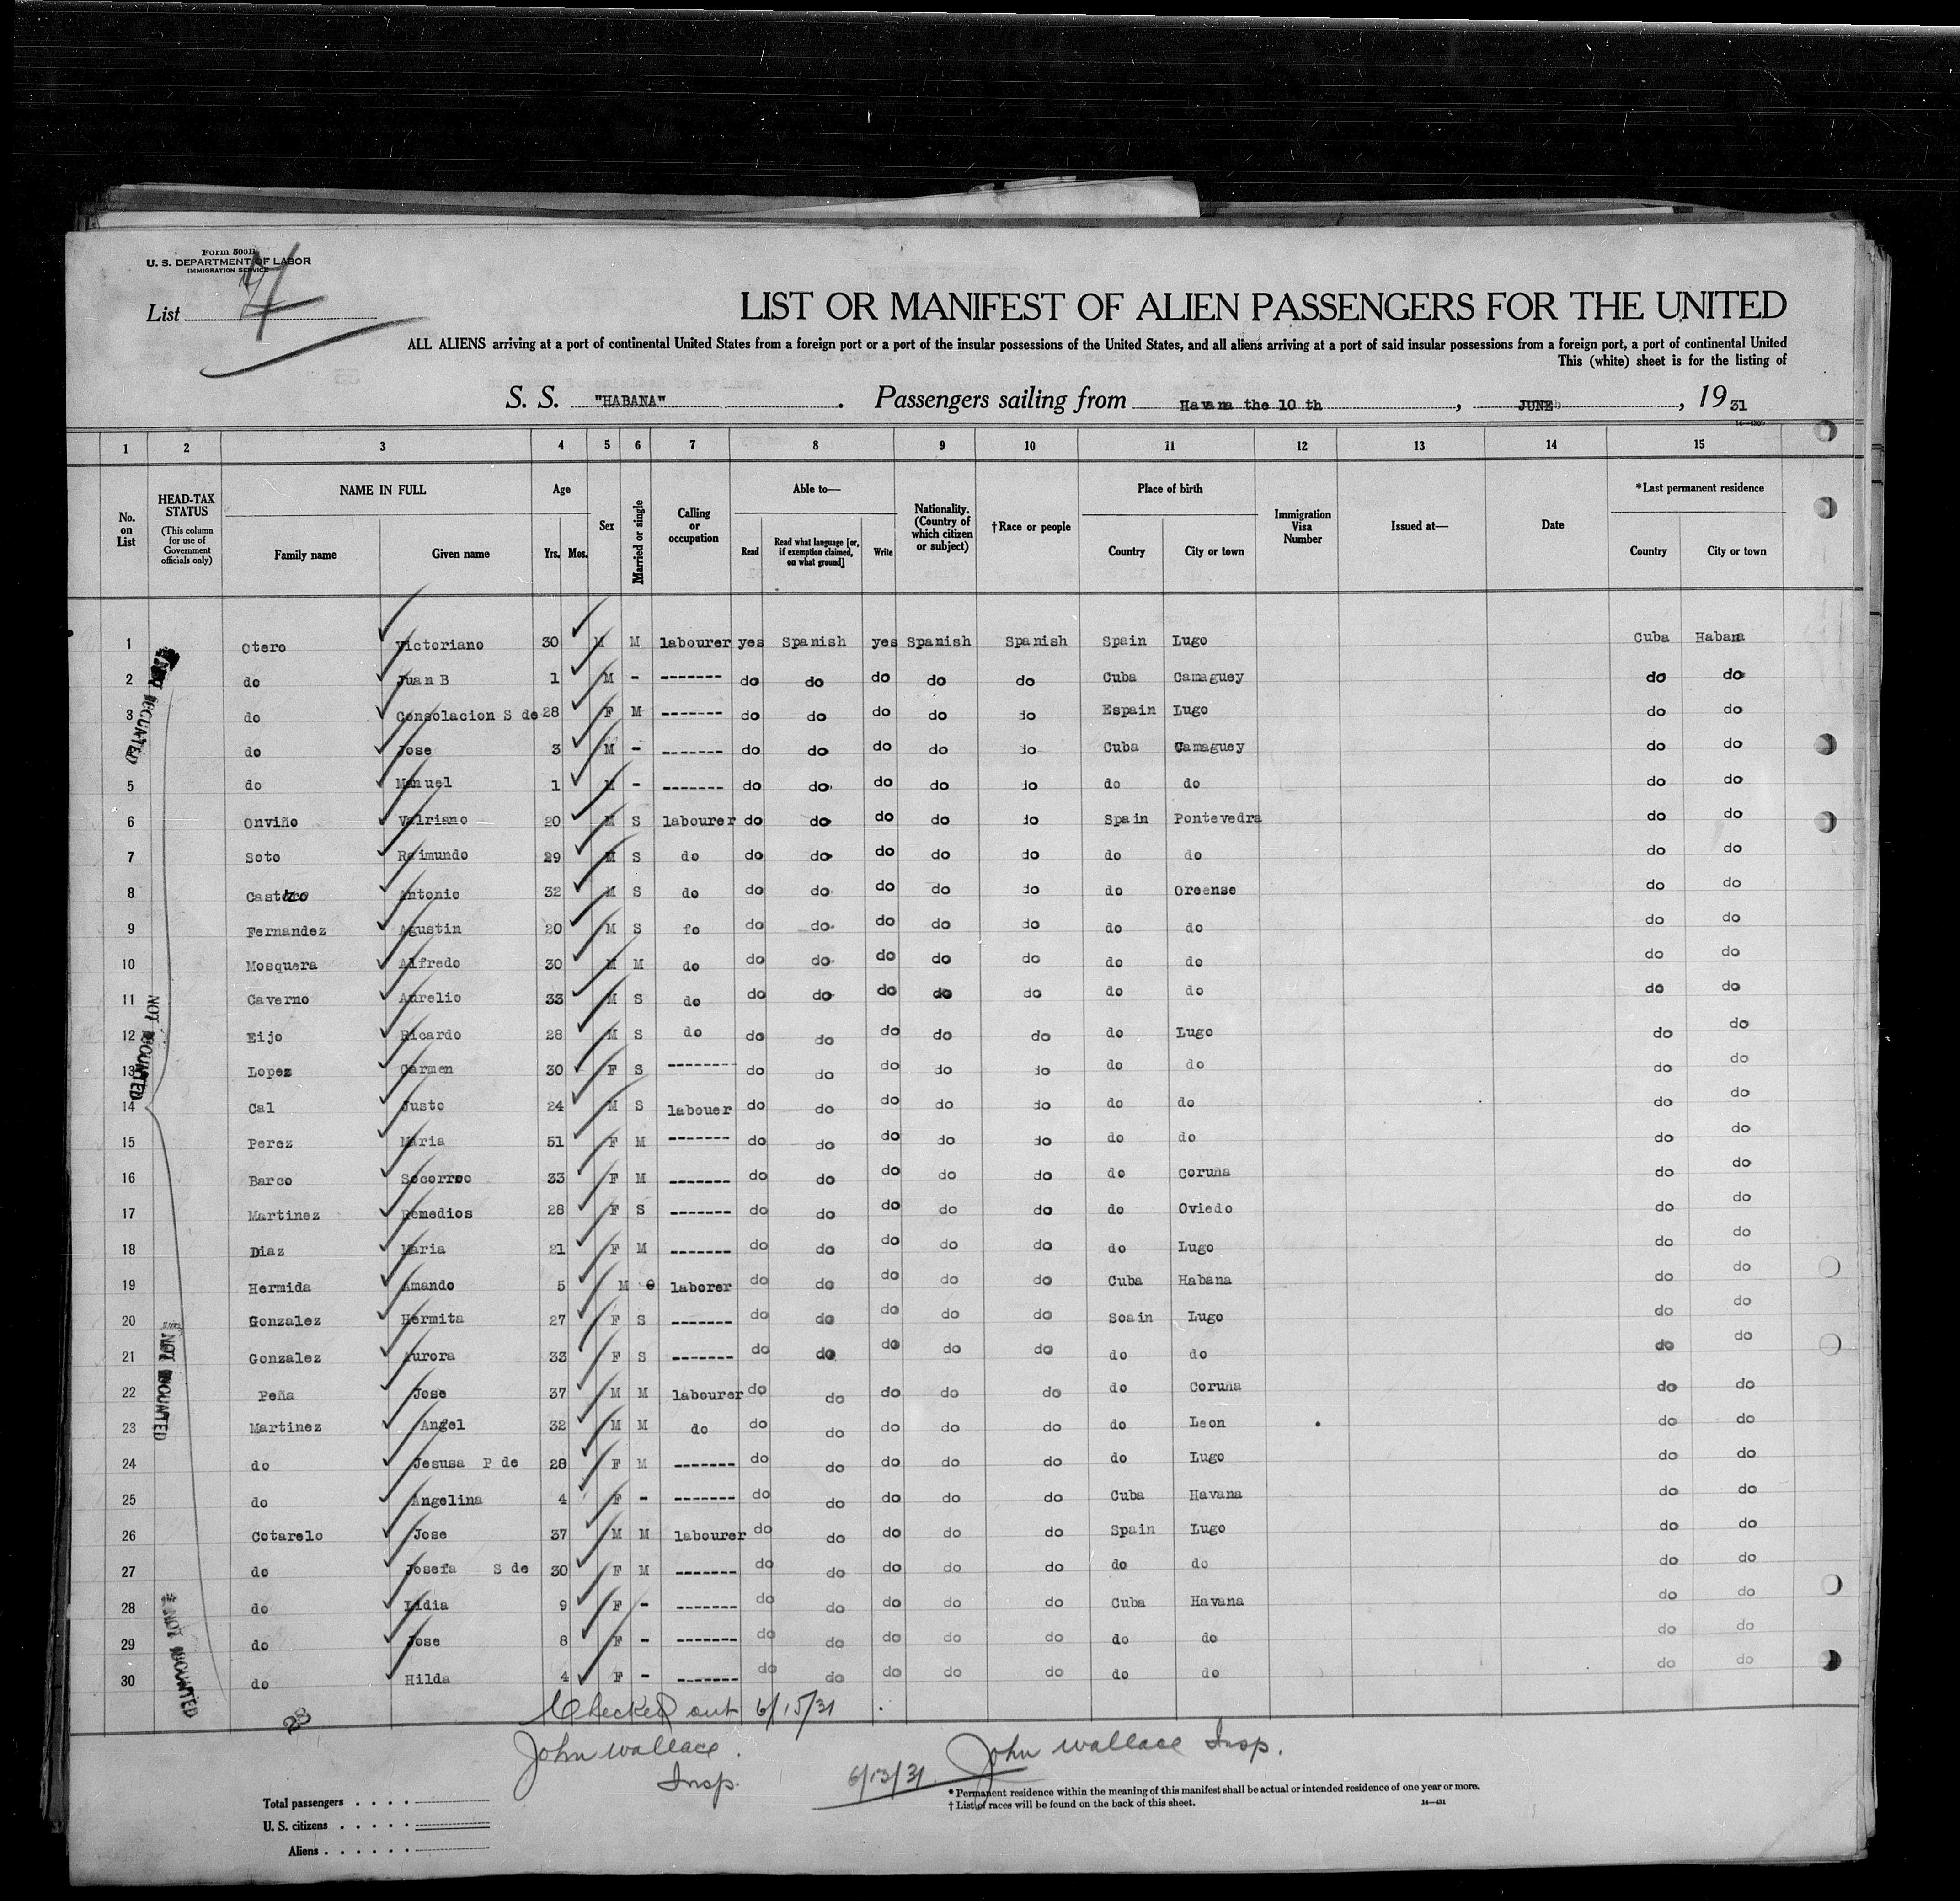 Form 500B
U. S. DEPARTMENT OF LABOR
IMMIGRATION SERVICE
List
LIST OR MANIFEST OF ALIEN PASSENGERS FOR THE UNITED
ALL ALIENS arriving at a port of continental United States from a foreign port or a port of the insular possessions of the United States, and all aliens arriving at a port of said insular possessions from a foreign port, a port of continental United
This (white) sheet is for the listing of
S. S. "HABANA". Passengers sailing from Havana the 10 th, JUNE, 1931
1 2 3 4 5 6 7 8 9 10 11 12 13 14 15
No. on List
HEAD-TAX STATUS
(This column for use of Government officials only)
NAME IN FULL
Family name Given name
Age
Yrs. Mos.
Sex
Married or single
Calling or occupation
Able to—
Read Read what language [or, if exemption claimed, on what ground] Write
Nationality. (Country of which citizen or subject)
†Race or people
Place of birth
Country City or town
Immigration Visa Number
Issued at—
Date
*Last permanent residence
Country City or town
1 Otero Victoriano 30 M M labourer yes Spanish yes Spanish Spanish Spain Lugo Cuba Habana
2 do Juan B 1 M - ------- do do do do do Cuba Camaguey do do
3 do Consolacion S de 28 F M ------- do do do do do Espain Lugo do do
4 do Jose 3 M - ------- do do do do do Cuba Camaguey do do
5 do Manuel 1 M - ------- do do do do do do do do do
6 Onviño Valriano 20 M S labourer do do do do do Spain Pontevedra do do
7 Soto Raimundo 29 M S do do do do do do do do do do
8 Castro Antonio 32 M S do do do do do do do Oreense do do
9 Fernandez Agustin 20 M S fo do do do do do do do do do
10 Mosquera Alfredo 30 M M do do do do do do do do do do
11 Caverno Aurelio 33 M S do do do do do do do do do do
12 Eijo Ricardo 28 M S do do do do do do do Lugo do do
13 Lopez Carmen 30 F S -------- do do do do do do do do do
14 Cal Justo 24 M S labouer do do do do do do do do do
15 Perez Maria 51 F M ------- do do do do do do do do do
16 Barco Socorroc 33 F M ------- do do do do do do Coruña do do
17 Martinez Remedios 28 F S ------- do do do do do do Oviedo do do
18 Diaz Maria 21 F M ------- do do do do do do Lugo do do
19 Hermida Amando 5 M laborer do do do do do Cuba Habana do do
20 Gonzalez Hermita 27 F S ------- do do do do do Soain Lugo do do
21 Gonzalez Aurora 33 F S ------- do do do do do do do do do
22 Peña Jose 37 M M labourer do do do do do do Coruña do do
23 Martinez Angel 32 M M do do do do do do do Leon do do
24 do Jesusa P de 28 F M ------- do do do do do do Lugo do do
25 do Angelina 4 F - ------- do do do do do Cuba Havana do do
26 Cotarelo Jose 37 M M labourer do do do do do Spain Lugo do do
27 do Josefa S de 30 F M ------- do do do do do do do do do
28 do Lidia 9 F - ------- do do do do do Cuba Havana do do
29 do Jose 8 F - ------- do do do do do do do do do
30 do Hilda 4 F - ------- do do do do do do do do do
NOT MOUNTED
NOT MOUNTED
NOT MOUNTED
NOT MOUNTED
Checked out 6/15/31
John Wallace.
Insp.
6/13/31. John Wallace Insp.
* Permanent residence within the meaning of this manifest shall be actual or intended residence of one year or more.
† List of races will be found on the back of this sheet.
Total passengers . . . .
U. S. citizens . . . . .
Aliens . . . . . .